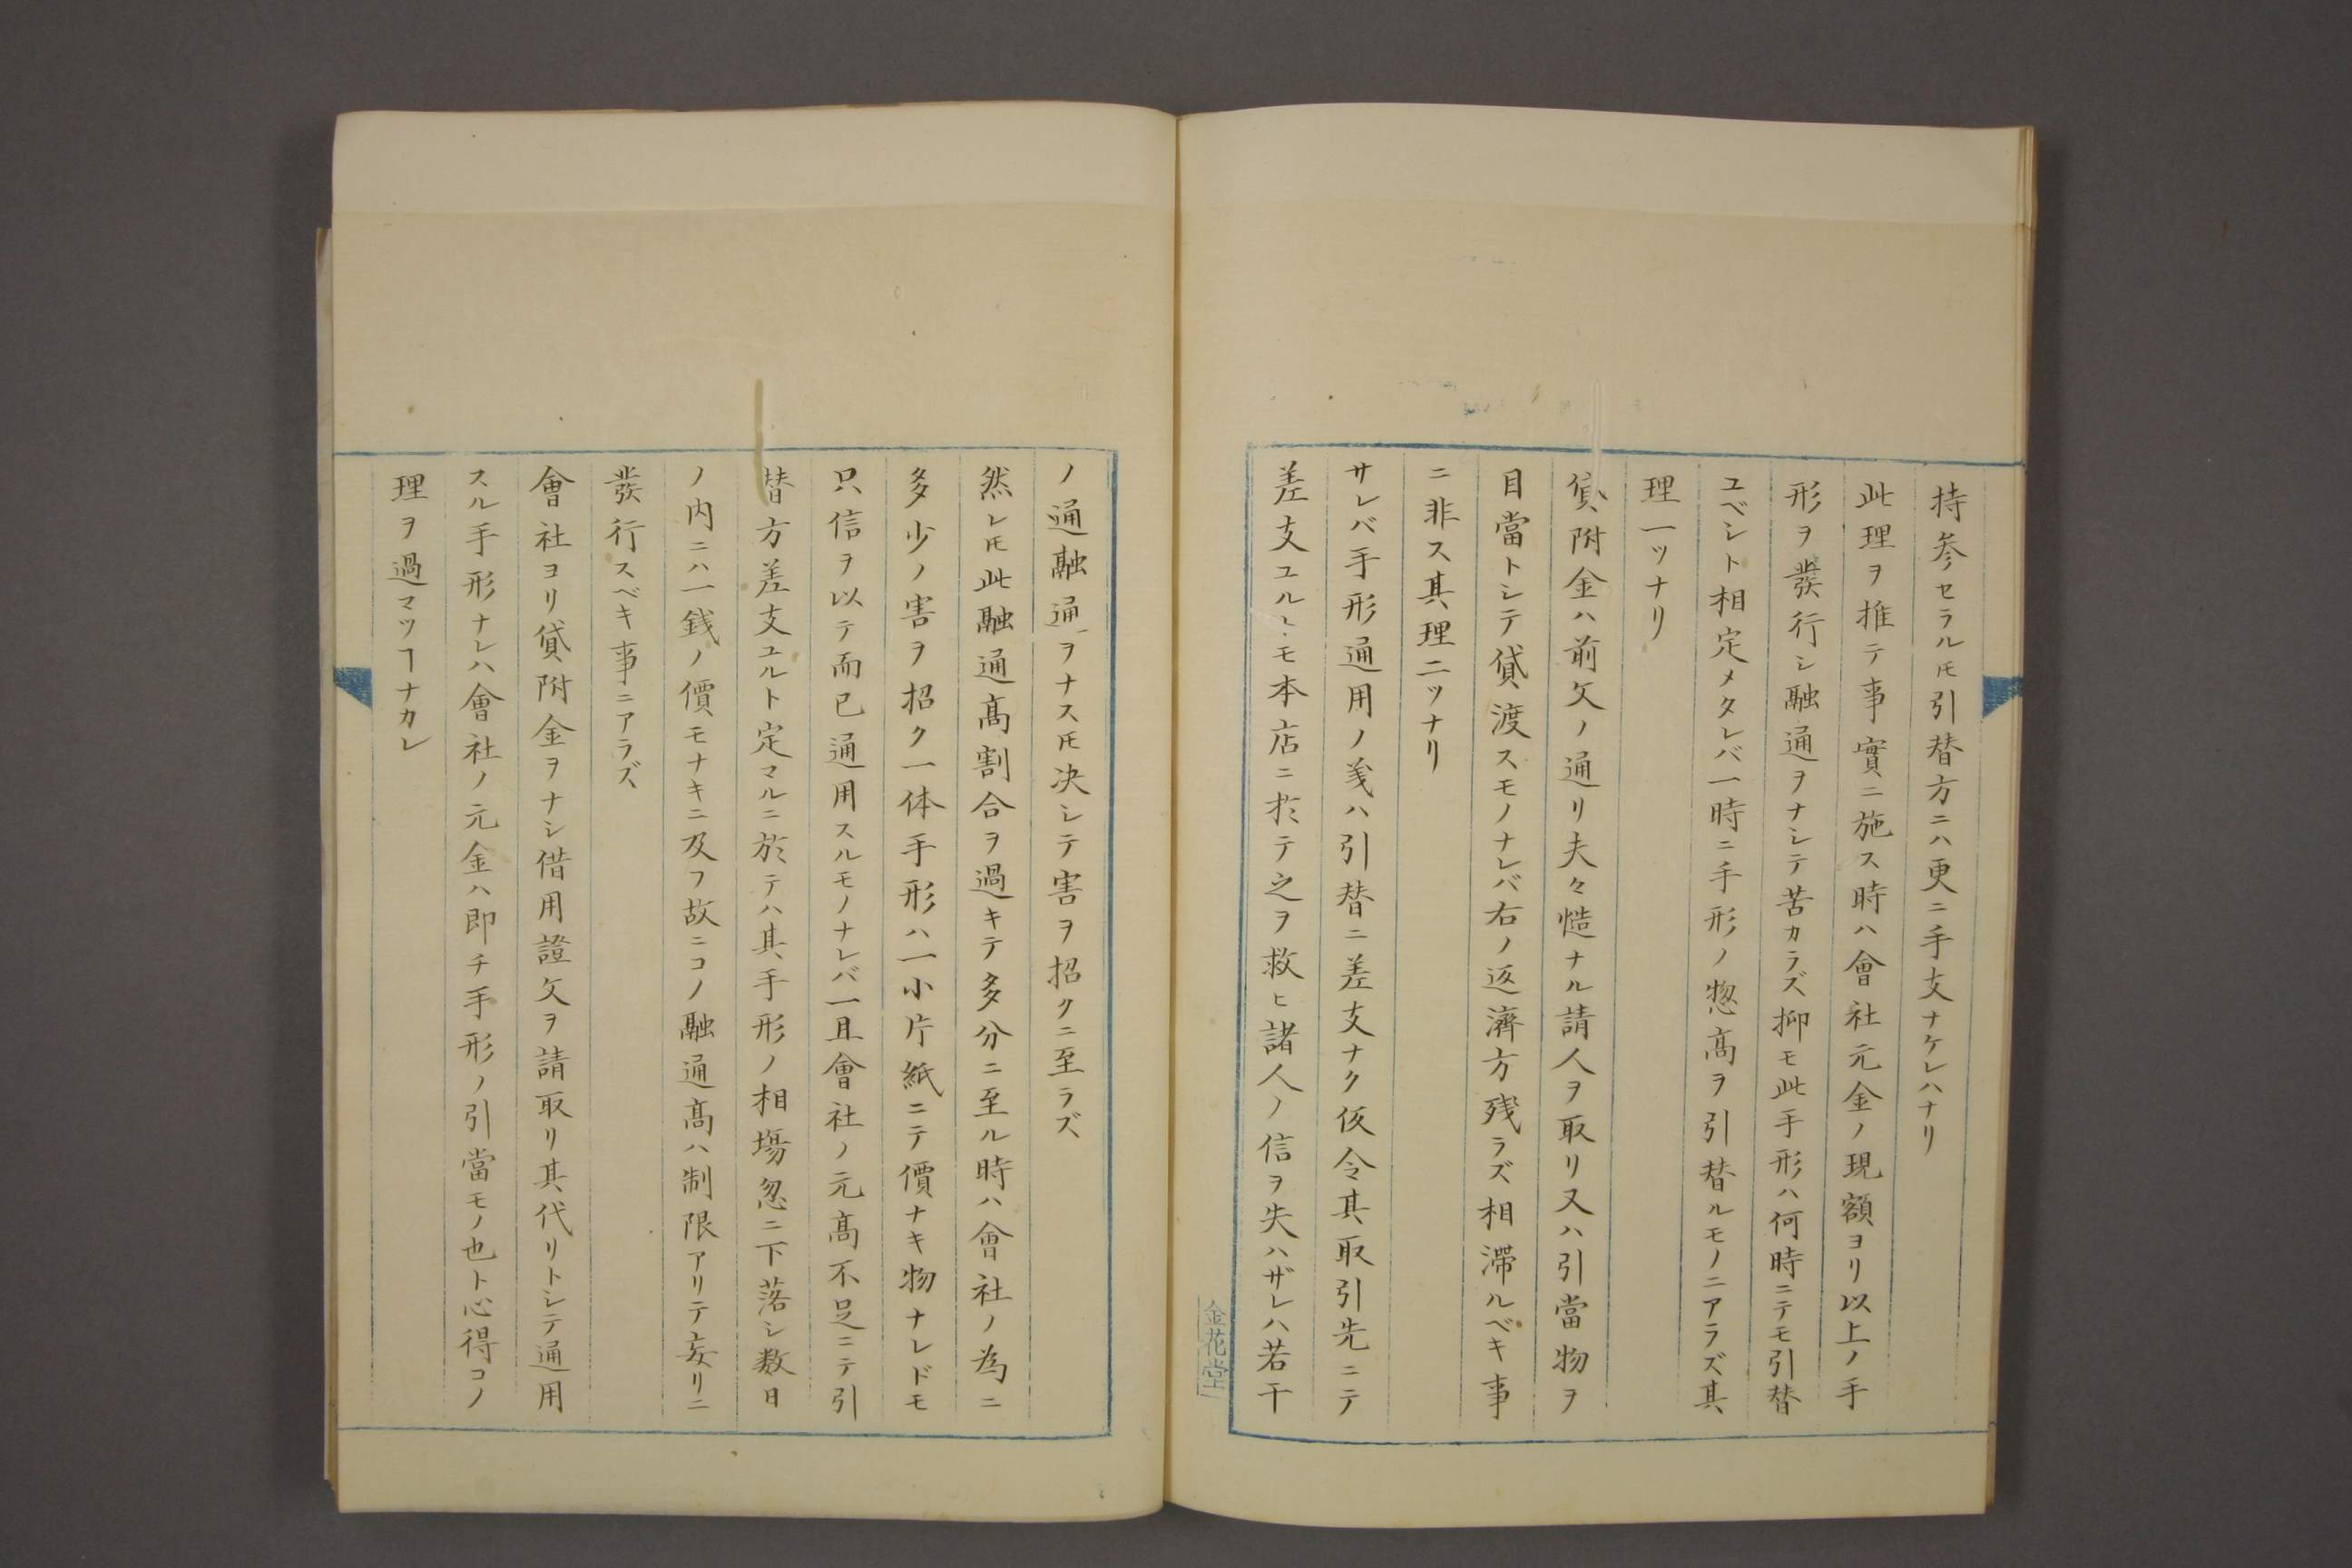 持参セラル𪜈引替方ニハ更ニ手支ナケレハナリ
此理ヲ推テ事實ニ施ス時ハ會社元金ノ現額ヨリ以上ノ手
形ヲ發行シ融通ヲナシテ苦カラズ抑モ此手形ハ何時ニテモ引替
ユベシト相定メタレバ一時ニ手形ノ惣高ヲ引替ルモノニアラズ其
理一ツナリ
貸附金ハ前文ノ通リ夫々慥ナル請人ヲ取リ又ハ引當物ヲ
目當トシテ貸渡スモノナレバ右ノ返濟方残ラズ相滞ルベキ事
ニ非ス其理二ツナリ
サレバ手形通用ノ義ハ引替ニ差支ナク仮令其取引先ニテ
差支ユルトモ本店ニ於テ之ヲ救ヒ諸人ノ信ヲ失ハザレハ若干
金花堂
ノ通融通ヲナス𪜈决シテ害ヲ招クニ至ラズ
然レ𪜈此融通髙割合ヲ過キテ多分ニ至ル時ハ會社ノ為ニ
多少ノ害ヲ招ク一体手形ハ一小片紙ニテ價ナキ物ナレドモ
只信ヲ以テ而已通用スルモノナレバ一旦會社ノ元髙不足ニテ引
替方差支ユルト定マルニ於テハ其手形ノ相塲忽ニ下落シ数日
ノ内ニハ一銭ノ價モナキニ及フ故ニコノ融通髙ハ制限アリテ妄リニ
發行スベキ事ニアラズ
會社ヨリ貸附金ヲナシ借用證文ヲ請取リ其代リトシテ通用
スル手形ナレハ會社ノ元金ハ即チ手形ノ引當モノ也ト心得コノ
理ヲ過マツヿナカレ